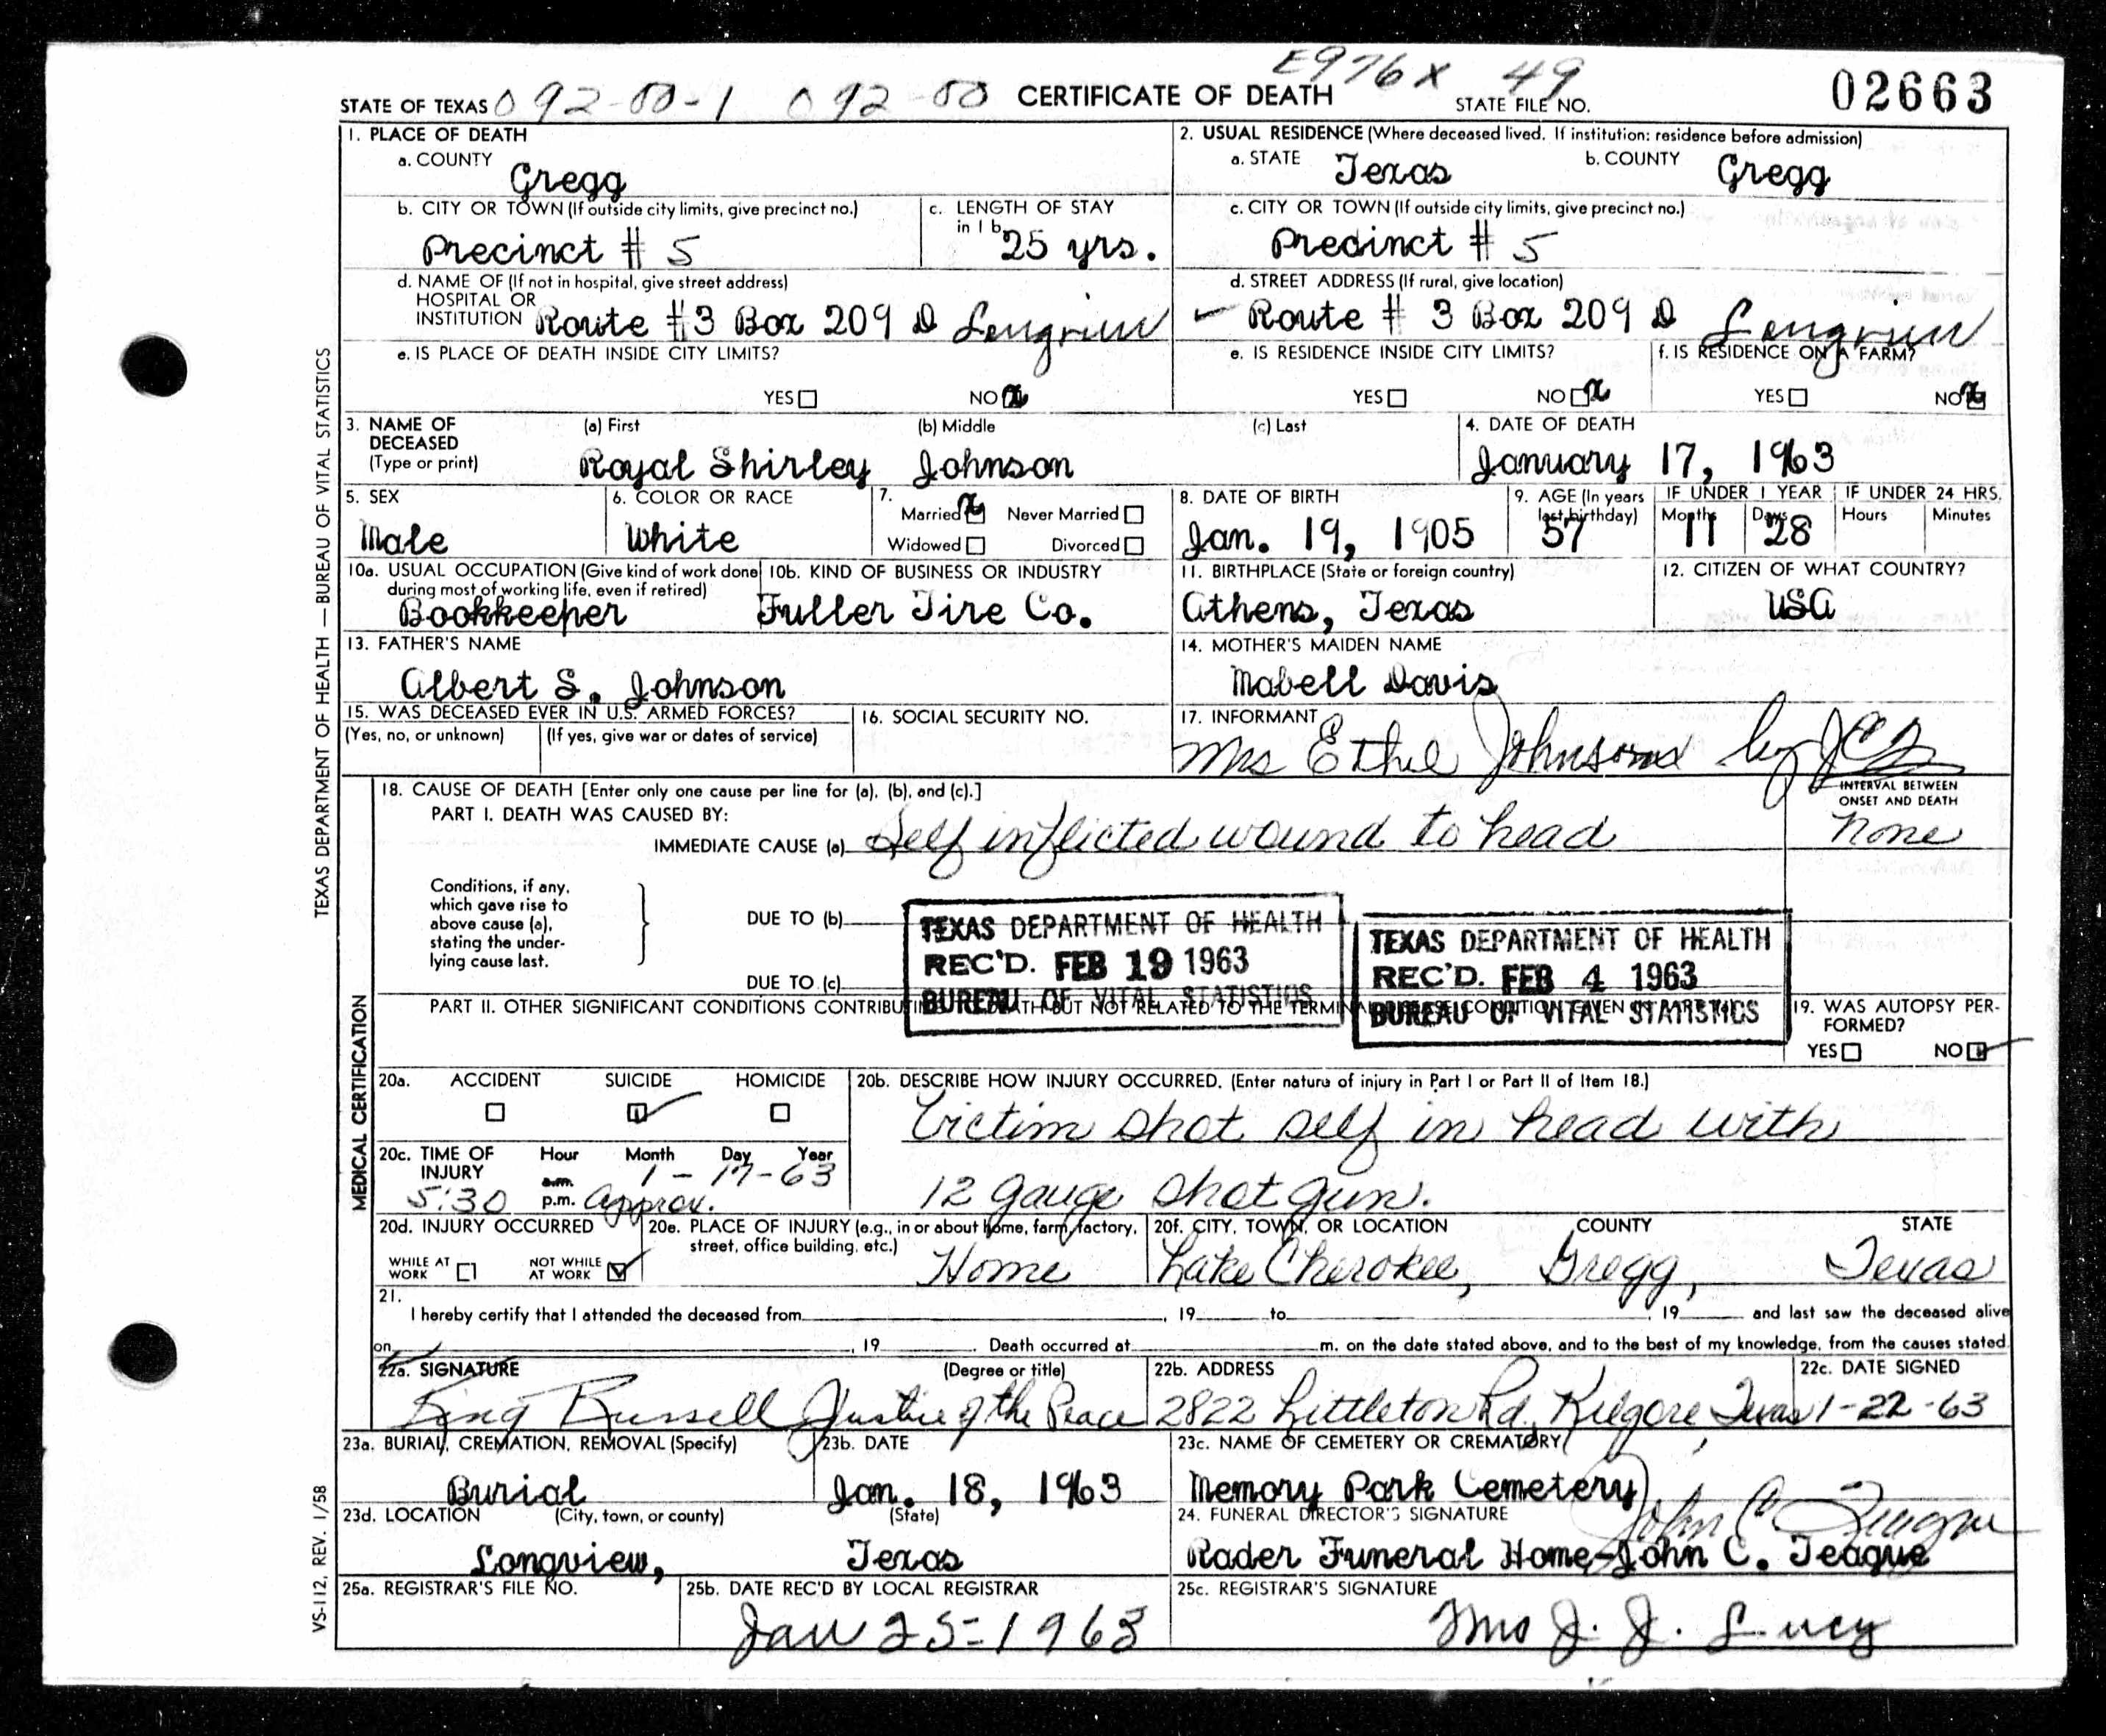 E976X 49
STATE OF TEXAS 092-00-1 092-00 CERTIFICATE OF DEATH STATE FILE NO. 02663
1. PLACE OF DEATH
a. COUNTY Gregg
2. USUAL RESIDENCE (Where deceased lived. If institution: residence before admission)
a. STATE Texas b. COUNTY Gregg
b. CITY OR TOWN (If outside city limits, give precinct no.)
Precinct # 5
c. LENGTH OF STAY in 1 b
25 yrs.
c. CITY OR TOWN (If outside city limits, give precinct no.)
Precinct # 5
d. NAME OF (If not in hospital, give street address)
HOSPITAL OR
INSTITUTION Route #3 Box 209 D Longview
d. STREET ADDRESS (If rural, give location)
Route # 3 Box 209 D Longview
e. IS PLACE OF DEATH INSIDE CITY LIMITS?
YES NO x
e. IS RESIDENCE INSIDE CITY LIMITS?
YES NO x
f. IS RESIDENCE ON A FARM?
YES NO x
3. NAME OF DECEASED (Type or print)
(a) First (b) Middle (c) Last
Royal Shirley Johnson
4. DATE OF DEATH
January 17, 1963
5. SEX
Male
6. COLOR OR RACE
White
7.
Married x Never Married
Widowed Divorced
8. DATE OF BIRTH
Jan. 19, 1905
9. AGE (In years last birthday)
57
IF UNDER 1 YEAR
Months 11 Days 28
IF UNDER 24 HRS.
Hours Minutes
10a. USUAL OCCUPATION (Give kind of work done during most of working life, even if retired)
Bookkeeper
10b. KIND OF BUSINESS OR INDUSTRY
Fuller Tire Co.
11. BIRTHPLACE (State or foreign country)
Athens, Texas
12. CITIZEN OF WHAT COUNTRY?
USA
13. FATHER'S NAME
Albert S. Johnson
14. MOTHER'S MAIDEN NAME
Mabell Davis
15. WAS DECEASED EVER IN U.S. ARMED FORCES?
(Yes, no, or unknown) (If yes, give war or dates of service)
16. SOCIAL SECURITY NO.
17. INFORMANT
Mrs Ethel Johnson by
18. CAUSE OF DEATH [Enter only one cause per line for (a), (b), and (c).]
PART I. DEATH WAS CAUSED BY:
IMMEDIATE CAUSE (a) Self inflicted wound to head
INTERVAL BETWEEN ONSET AND DEATH
None
Conditions, if any,
which gave rise to
above cause (a),
stating the under-
lying cause last.
DUE TO (b)
DUE TO (c)
TEXAS DEPARTMENT OF HEALTH
REC'D. FEB 19 1963
BUREAU OF VITAL STATISTICS
TEXAS DEPARTMENT OF HEALTH
REC'D. FEB 4 1963
BUREAU OF VITAL STATISTICS
PART II. OTHER SIGNIFICANT CONDITIONS CONTRIBUTING TO DEATH BUT NOT RELATED TO THE TERMINAL DISEASE CONDITION GIVEN IN PART I(a)
19. WAS AUTOPSY PER-
FORMED?
YES NO
20a. ACCIDENT SUICIDE HOMICIDE
20b. DESCRIBE HOW INJURY OCCURRED. (Enter nature of injury in Part I or Part II of Item 18.)
Victim shot self in head with
12 gauge shot gun.
20c. TIME OF INJURY
Hour Month Day Year
a.m. 1-17-63
5:30 p.m. approx.
20d. INJURY OCCURRED
WHILE AT WORK NOT WHILE AT WORK
20e. PLACE OF INJURY (e.g., in or about home, farm, factory, street, office building, etc.)
Home
20f. CITY, TOWN, OR LOCATION COUNTY STATE
Lake Cherokee, Gregg, Texas
21.
I hereby certify that I attended the deceased from , 19 to , 19 and last saw the deceased alive
on , 19 . Death occurred at m. on the date stated above, and to the best of my knowledge, from the causes stated.
22a. SIGNATURE (Degree or title)
King Russell Justice of the Peace
22b. ADDRESS
2822 Littleton Rd. Kilgore, Texas
22c. DATE SIGNED
1-22-63
23a. BURIAL, CREMATION, REMOVAL (Specify)
Burial
23b. DATE
Jan. 18, 1963
23c. NAME OF CEMETERY OR CREMATORY
Memory Park Cemetery
23d. LOCATION (City, town, or county) (State)
Longview, Texas
24. FUNERAL DIRECTOR'S SIGNATURE
John C. Teague
Rader Funeral Home-John C. Teague
25a. REGISTRAR'S FILE NO.
25b. DATE REC'D BY LOCAL REGISTRAR
Jan 25-1963
25c. REGISTRAR'S SIGNATURE
Mrs J. J. Lucy
TEXAS DEPARTMENT OF HEALTH — BUREAU OF VITAL STATISTICS
MEDICAL CERTIFICATION
VS-112, REV. 1/58